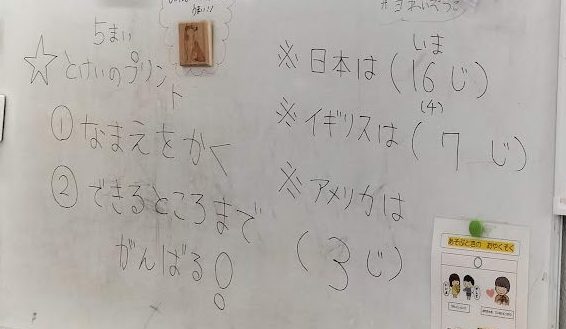 5まい
☆とけいのプリント
①なまえをかく
②できるところまで
がんばる!
いま
※日本は(16じ)
(4)
※イギリスは(7じ)
※アメリカは
(3じ)
あそぶときの おやくそく